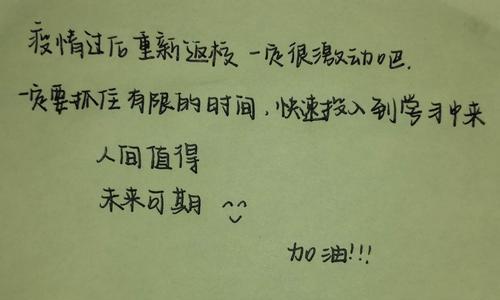 疫情过后重新返校 一定很激动吧.
一定要抓住有限的时间,快速投入到学习中来
人间值得
未来可期 ^^
加油!!!